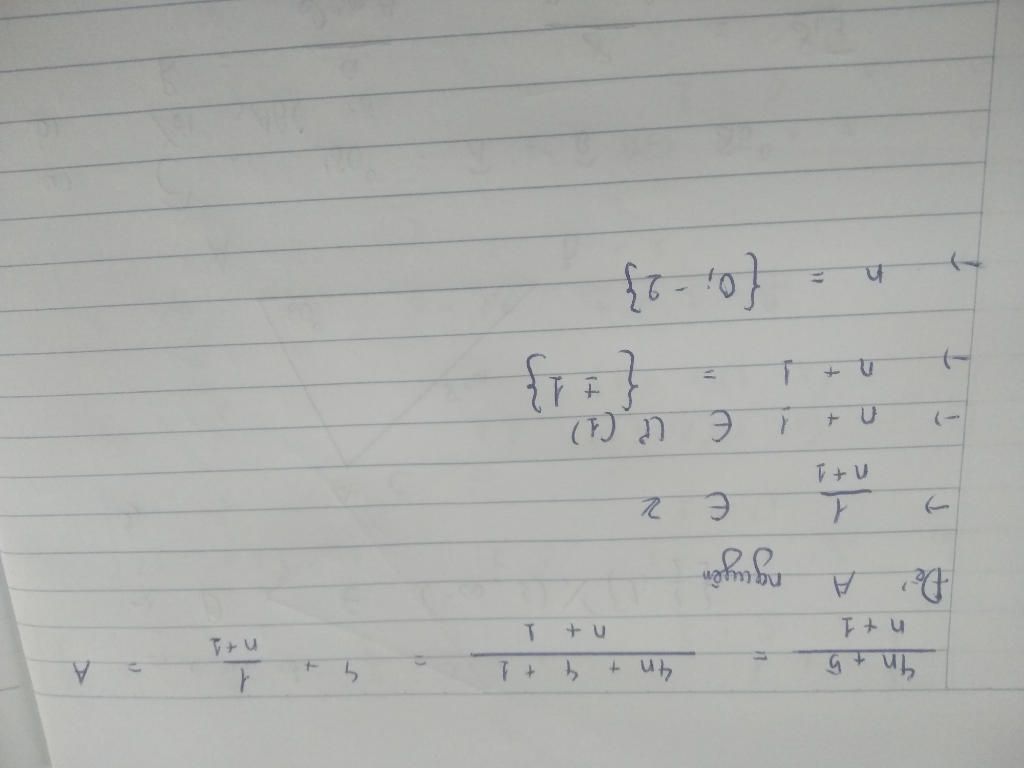 4n + 5 / n + 1 = 4n + 4 + 1 / n + 1 = 4 + 1 / n+1 = A
Để A nguyên
→ 1 / n+1 ∈ Z
→ n + 1 ∈ Ư (1)
→ n + 1 = {± 1}
→ n = {0; - 2}